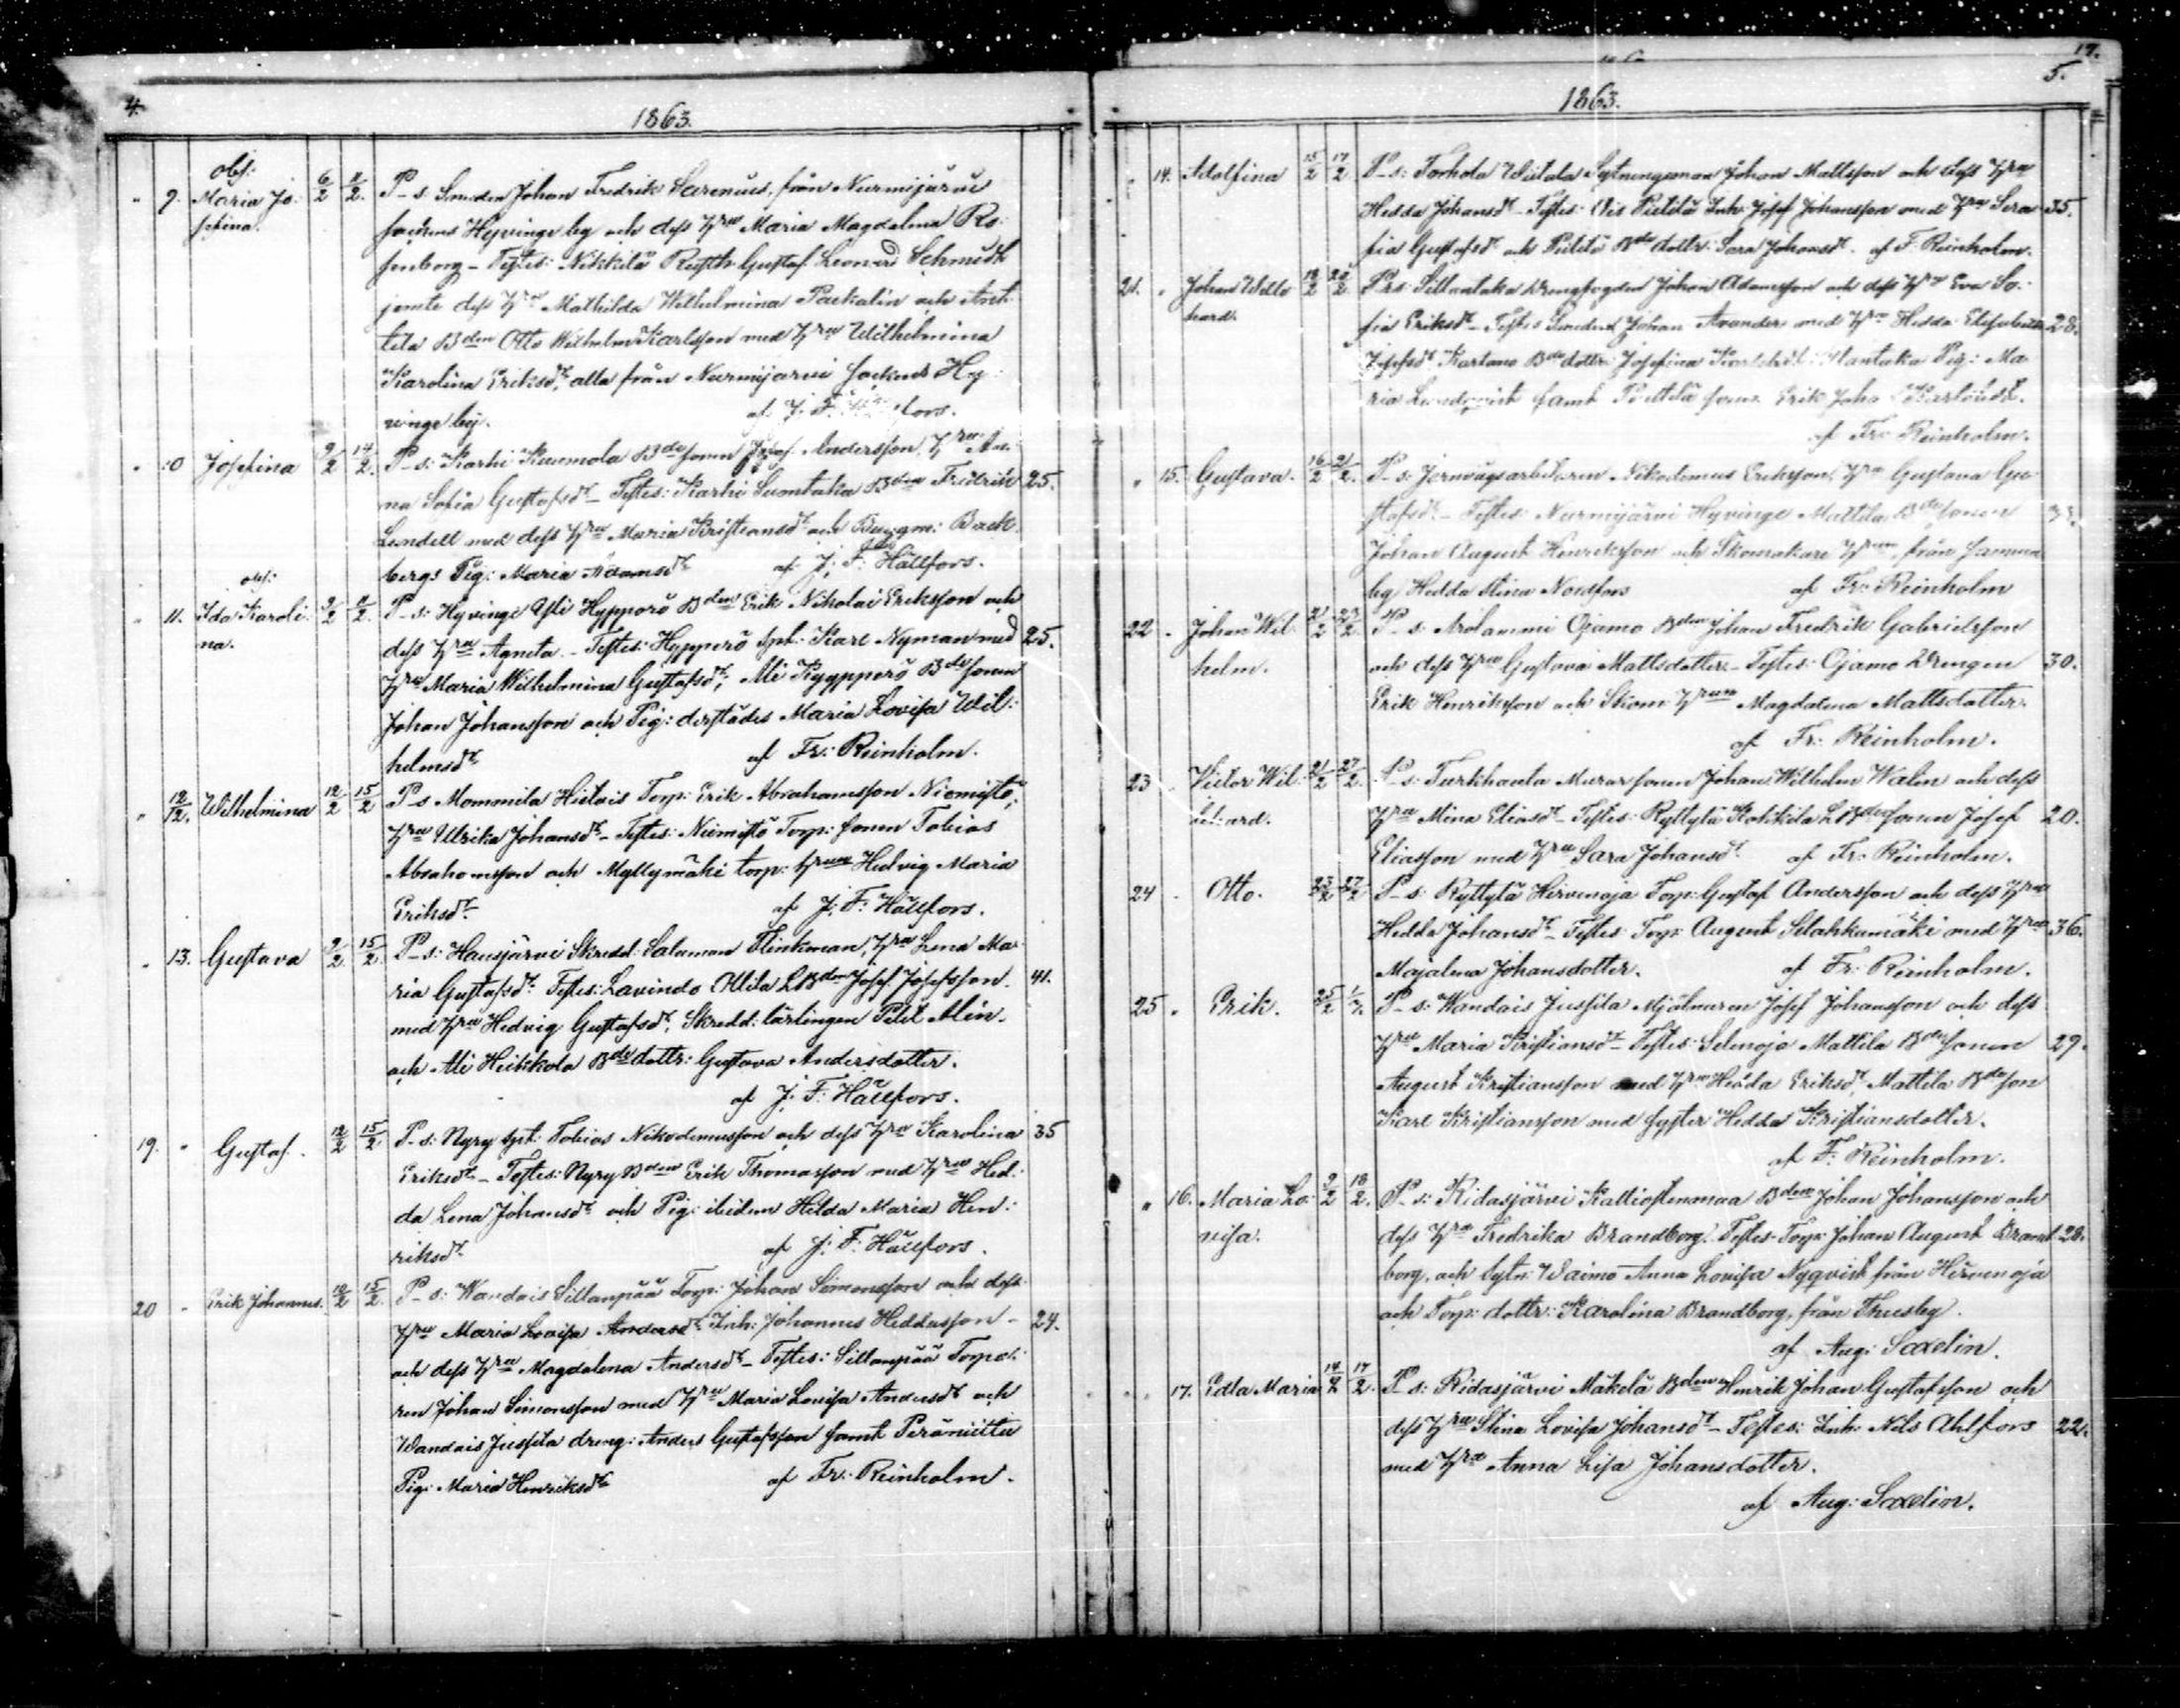 4.
1863.
obs:
9. Maria Jo- 6/2 11/2. P–s: Smeden Johan Fredrik Sarenius, från Nurmijärvi
sefina. sockens Hyvinge by och dess Hru Maria Magdalena Ro-
senborg – Testes: Nikkilä Rusth. Gustaf Leonard Schmidt
jemte dess Hru Mathilda Wilhelmina Packalin och Ant-
tila Bden Otto Wilhelm Karlsson med Hru Wilhelmina
Karolina Eriksdr, alla från Nurmijärvi sockens Hy-
vinge by. af J. F.
10 Josefina 9/2 14/2. P–s: Karhi Kaumola Bdesonen Josef Andersson, Hru An-
na Sofia Gustafsdr – Testes: Karhi Suontaka Bden Fredrik 25.
Lundell med dess Hru Maria Kristiansdr och Byggm: Back-
bergs Pig: Maria Adamsdr af J. F. Hällfors.
obs:
11. Ida Karoli- 9/2 11/2. P–s: Hyvinge Yli Hypporö Bden Erik Nikolai Eriksson och
na. dess Hru Agneta – Testes: Hypporö Spt: Karl Nyman med 25.
Hru Maria Wilhelmina Gustafsdr, Ali Kyypporö Bdesonen
Johan Johansson och Pig: derstädes Maria Lovisa Wil-
helmsdr af Fr: Reinholm.
12/12. Wilhelmina 12/2 15/2 P–s Mommila Hietois Torp: Erik Abrahamsson Niemistö,
Hru Ulrika Johansdr – Testes: Niemistö Torp: sonen Tobias
Abrahamsson och Myllymäki torp: hrun Hedvig Maria
Eriksdr. af J. F. Hällfors.
13. Gustava 9/2. 15/2. P–s: Hausjärvi Skredd: Salomon Flinkman, Hru Lena Ma-
ria Gustafsdr Testes: Lavindo Ollila LBden Josef Josefsson 41.
med Hru Hedvig Gustafsdr, Skredd: lärlingen Petet Alin
och Ali Heikkola Bdedottr: Gustava Andersdotter.
af J. F. Hällfors.
19. Gustaf. 12/2 15/2. P–s: Ryry Spt: Tobias Nikodemusson och dess Hru Karolina 35
Eriksdr – Testes: Ryry Bden Erik Thomasson med Hru Hed-
da Lena Johansdr och Pig: ibidem Hilda Maria Hen-
riksdr af J. F. Hällfors.
20 Erik Johannes. 10/2 15/2. P–s: Wandais Sillanpää Torp: Johan Simonsson och dess
Hru Maria Lovisa Andersdr Inh: Johannes Heddasson – 24.
och dess Hru Magdalena Andersdr – Testes: Sillanpää Torpa-
ren Johan Simonsson med Hru Maria Lovisa Andersdr och
Wandais Jussila dreng: Anders Gustafsson samt Peräniittu
Pig: Maria Henriksdr af Fr: Reinholm.
17.
5.
1863.
14. Adolfina 15/2 17/2 P–s: Torhola Wietala Sytningsman Johan Mattsson och dess Hru
Hedda Johansdr – Testes: Pietilä Inh: Josef Johansson med Hru Sera- 35.
fia Gustafsdr och Pietilä Bdedottr: Sara Johansdr. af F. Reinholm.
21. Johan Wille- 18/2 20/2. P–s: Sillantaka Drengfogden Johan Adamsson och dess Hru Eva So-
hard. fia Eriksdr – Testes Smeden Johan Avander med Hru Hedda Elisabeth 28.
Josefsdr Kartano Bdedottr: Josefina Pig: Ma-
ria Lundqvist samt Pietilä sonen Erik Joha
af Fr: Reinholm.
15. Gustava. 16/2 21/2. P–s: Jernvägsarbetaren Nikodemus Eriksson, Hru Gustava Gu-
stafsdr – Testes: Nurmijärvi Hyvinge Mattila Bdesonen 33.
Johan August Henriksson och Skomakare Hrun, från samma
by Hedda Stina Nordfors af Fr: Reinholm
22 Johan Wil- 21/2 23/2. P–s: Arolammi Ojamo Bden Johan Fredrik Gabrielsson
helm. och dess Hru Gustava Mattsdotter – Testes: Ojamo Drengen 30.
Erik Henriksson och Skom Hrun Magdalena Mattsdotter.
af Fr: Reinholm.
23 Victor Wil- 21/2 27/2. P–s: Turkhauta Murarsonen Johan Wilhelm Walin och dess
lehard. Hru Mina Eliasdr – Testes: Ryttylä Kokkila LBdesonen Josef 20.
Eliasson med Hru Sara Johansdr af Fr: Reinholm.
24 Otto. 23/2 27/2 P–s: Ryttylä Hirvenoja Torp: Gustaf Andersson och dess Hru
Hedda Johansdr – Testes Torp: August Selahkamäki med Hru 36.
Majalena Johansdotter. af Fr: Reinholm.
25 Erik. 25/2 1/3. P–s: Wandais Jussila Mjölnaren Josef Johansson och dess
Hru Maria Kristiansdr – Testes: Selenoja Mattila Bdesonen 29.
August Kristiansson med Hru Hedda Eriksdr, Mattila Bdeson
Karl Kristiansson med syster Hedda Kristiansdotter.
af F: Reinholm.
16. Maria Lo- 9/2 18/2. P–s: Ridasjärvi Kalliostenmaa Bden Johan Johansson och
visa. dess Hru Fredrika Brandborg. Testes: Torp: Johan August Brand- 28.
borg, och Sytn: Waimo Anna Lovisa Nyqvist från Hirvenoja
och Torp: dottr: Karolina Brandborg, från Thusby.
af Aug: Saxelin.
17. Edla Maria 14/2 17/2. P–s: Ridasjärvi Mäkelä Bden Henrik Johan Gustafsson och
dess Hru Stina Lovisa Johansdr – Testes: Inh: Nils Ahlfors 22.
med Hru Anna Lisa Johansdotter.
af Aug: Saxelin.